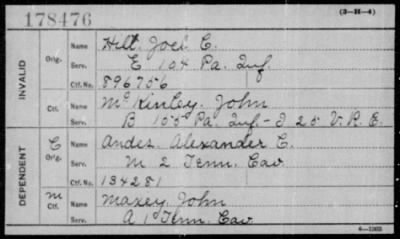 178476
(3-H-4)
INVALID
Orig.
Name Hilt, Joel C.
Serv. E 104 Pa. Inf.
Ctf. No. 896756
Ctf.
Name McKinley, John
Serv. B 155 Pa. Inf. - I 25 V. R. C.
DEPENDENT
C
Orig.
Name Andes, Alexander C.
Serv. M 2 Tenn. Cav.
Ctf. No. 134281
M
Ctf.
Name Maxey, John
Serv. A 1 Tenn. Cav.